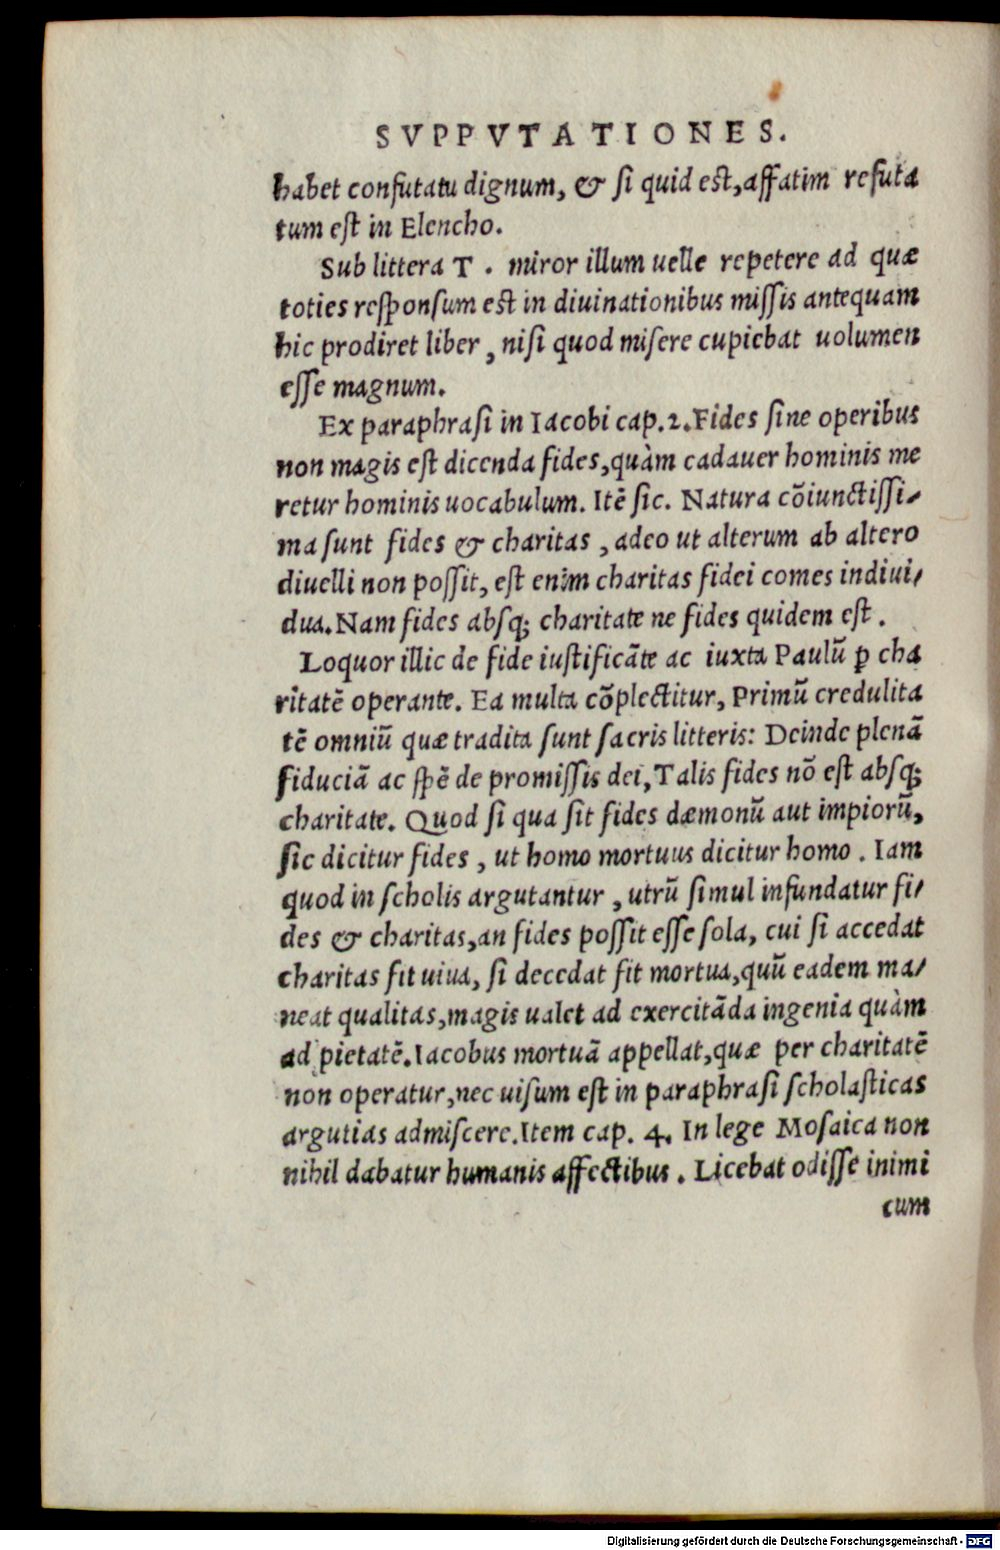 SVPPVTATIONES.
habet confutatu dignum, & ſi quid eſt, affatim refuta
tum eſt in Elencho.
Sub littera T . miror illum uelle repetere ad quæ
toties reſponſum eſt in diuinationibus miſſis antequam
hic prodiret liber , niſi quod miſere cupiebat uolumen
eſſe magnum.
Ex paraphraſi in Iacobi cap.2.Fides ſine operibus
non magis eſt dicenda fides,quàm cadauer hominis me
retur hominis uocabulum. Itē ſic. Natura cōiunctiſſi⸗
ma ſunt fides & charitas , adeo ut alterum ab altero
diuelli non poſſit, eſt enim charitas fidei comes indiui⸗
dua.Nam fides abſq; charitate ne fides quidem eſt .
Loquor illic de fide iuſtificāte ac iuxta Paulū ꝑ cha
ritatē operante. Ea multa cōplectitur, Primū credulita
tē omniū quæ tradita ſunt ſacris litteris: Deinde plenā
fiduciā ac ſpē de promiſſis dei,Talis fides nō eſt abſq;
charitate. Quod ſi qua ſit fides dæmonū aut impiorū,
ſic dicitur fides , ut homo mortuus dicitur homo . Iam
quod in ſcholis argutantur , utrū ſimul infundatur fi⸗
des & charitas,an fides poſſit eſſe ſola, cui ſi accedat
charitas fit uiua, ſi decedat fit mortua,quū eadem ma⸗
neat qualitas,magis ualet ad exercitāda ingenia quàm
ad pietatē.Iacobus mortuā appellat,quæ per charitatē
non operatur,nec uiſum eſt in paraphraſi ſcholaſticas
argutias admiſcere.Item cap. 4. In lege Moſaica non
nihil dabatur humanis affectibus . Licebat odiſſe inimi
cum
Digitalisierung gefördert durch die Deutsche Forschungsgemeinschaft - DFG